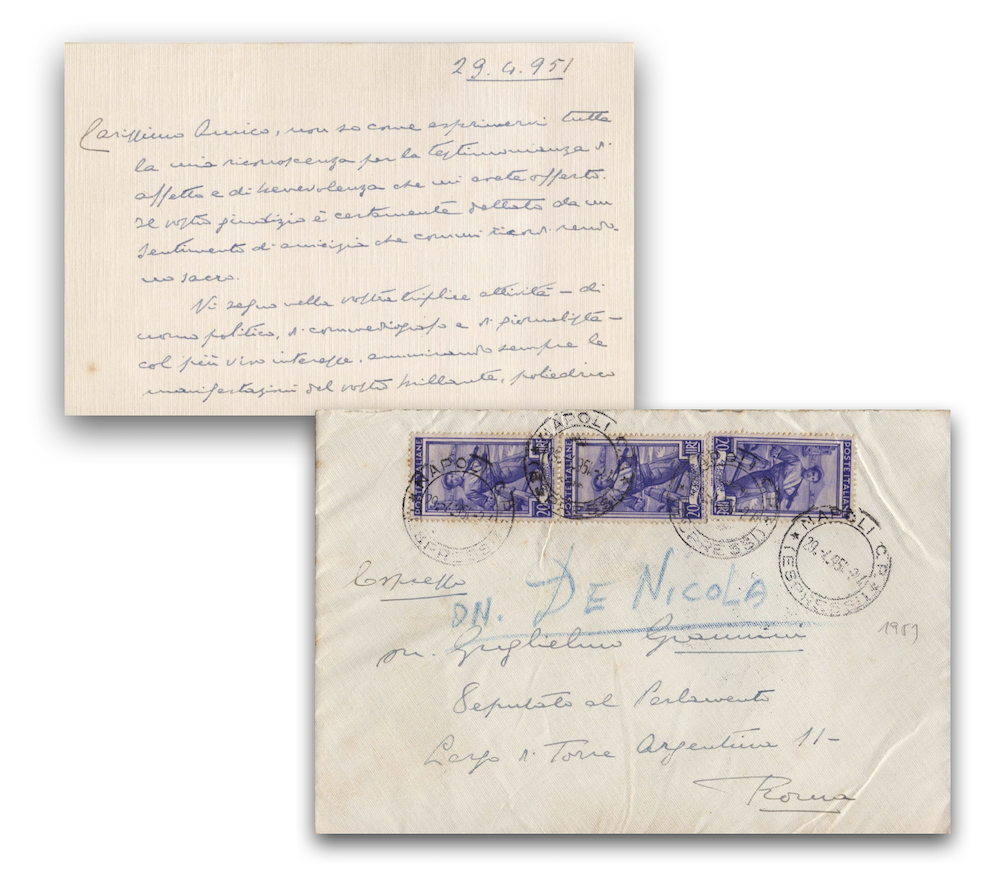 29.4.951
Carissimo Amico, non so come esprimervi tutta
la mia riconoscenza per la testimonianza di
affetto e di benevolenza che mi avete offerto.
Il vostro giudizio è certamente dettato da un
sentimento di amicizia che comuni ricordi rendo
no sacro.
Vi seguo nella vostra triplice attività – di
uomo politico, di commediografo e di giornalista –
col più vivo interesse, ammirando sempre le
manifestazioni del vostro brillante, poliedrico
POSTE ITALIANE LIRE 20
POSTE ITALIANE LIRE 20
POSTE ITALIANE LIRE 20
NAPOLI C.P.
NAPOLI C.P.
NAPOLI C.P. (ESPRESSI)
Espresso
ON. DE NICOLA
1951
on. Guglielmo Giannini
Deputato al Parlamento
Largo di Torre Argentina 11 –
Roma